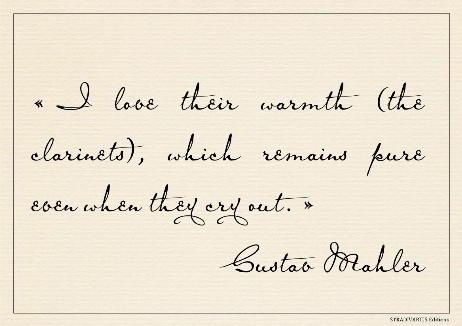 « I love their warmth (the
clarinets), which remains pure
even when they cry out. »
Gustav Mahler
STRADIVARIUS Editions